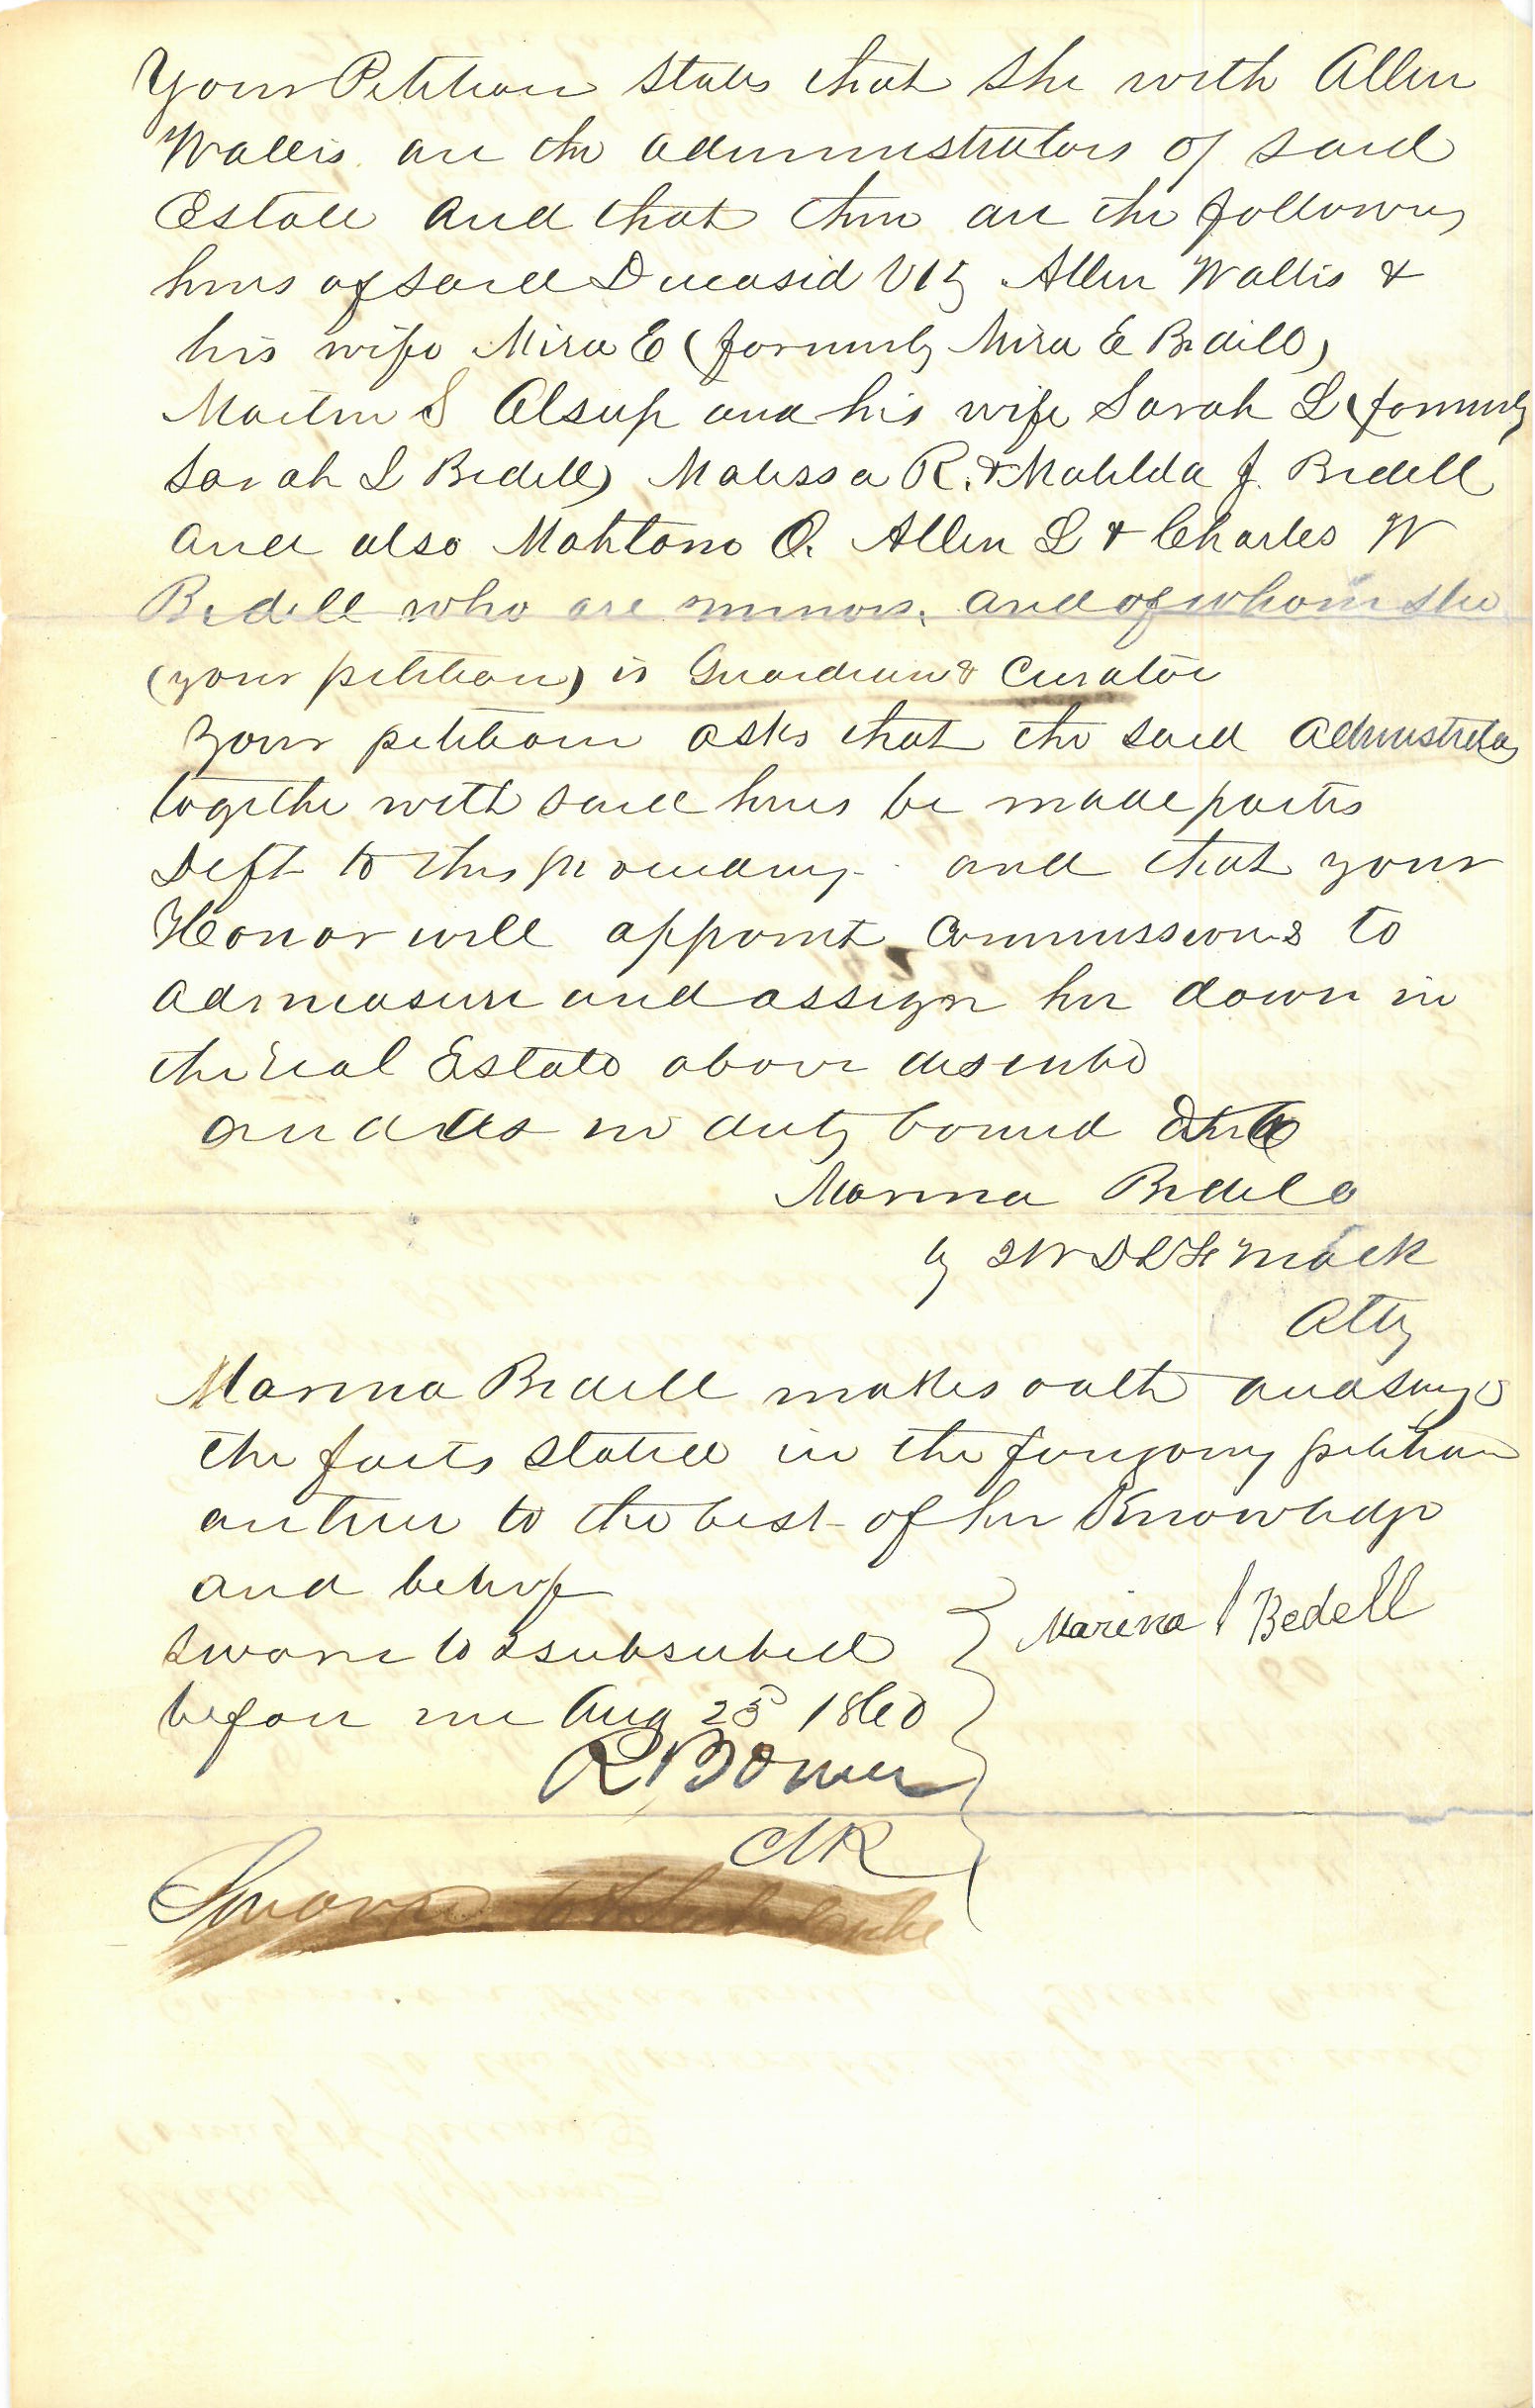 Your Petition States that She with Allen
Wallis are the administrators of said
Estate and that there are the following
heirs of said Deceased Viz Allen Wallis &
his wife Mira E (formerly Mira E Bedell)
Martin S Alsup and his wife Sarah L (formerly
Sarah L Bedell) Malissa R. & Matilda J. Bedell
and also O. Allen L & Charles W
Bedell who are minors. and of whom she
(your petition) is Guardian & Curator
Your petition asks that the said Administrators
together with said heirs be made parties
Deft to this proceeding. and that your
Honor will appoint Commissioners to
admeasure and assign her dower in
the real Estate above describd
and as in duty bound &c
Marina Bedell
by Mack
Atty
Marina Bedell makes oath and says
the facts stated in the forgoing petition
are true to the best of her Knowledge
and belief
Marina Bedell
Sworn to & subscribed
before me Aug 25 1860
R
Sworn to & Subscribe